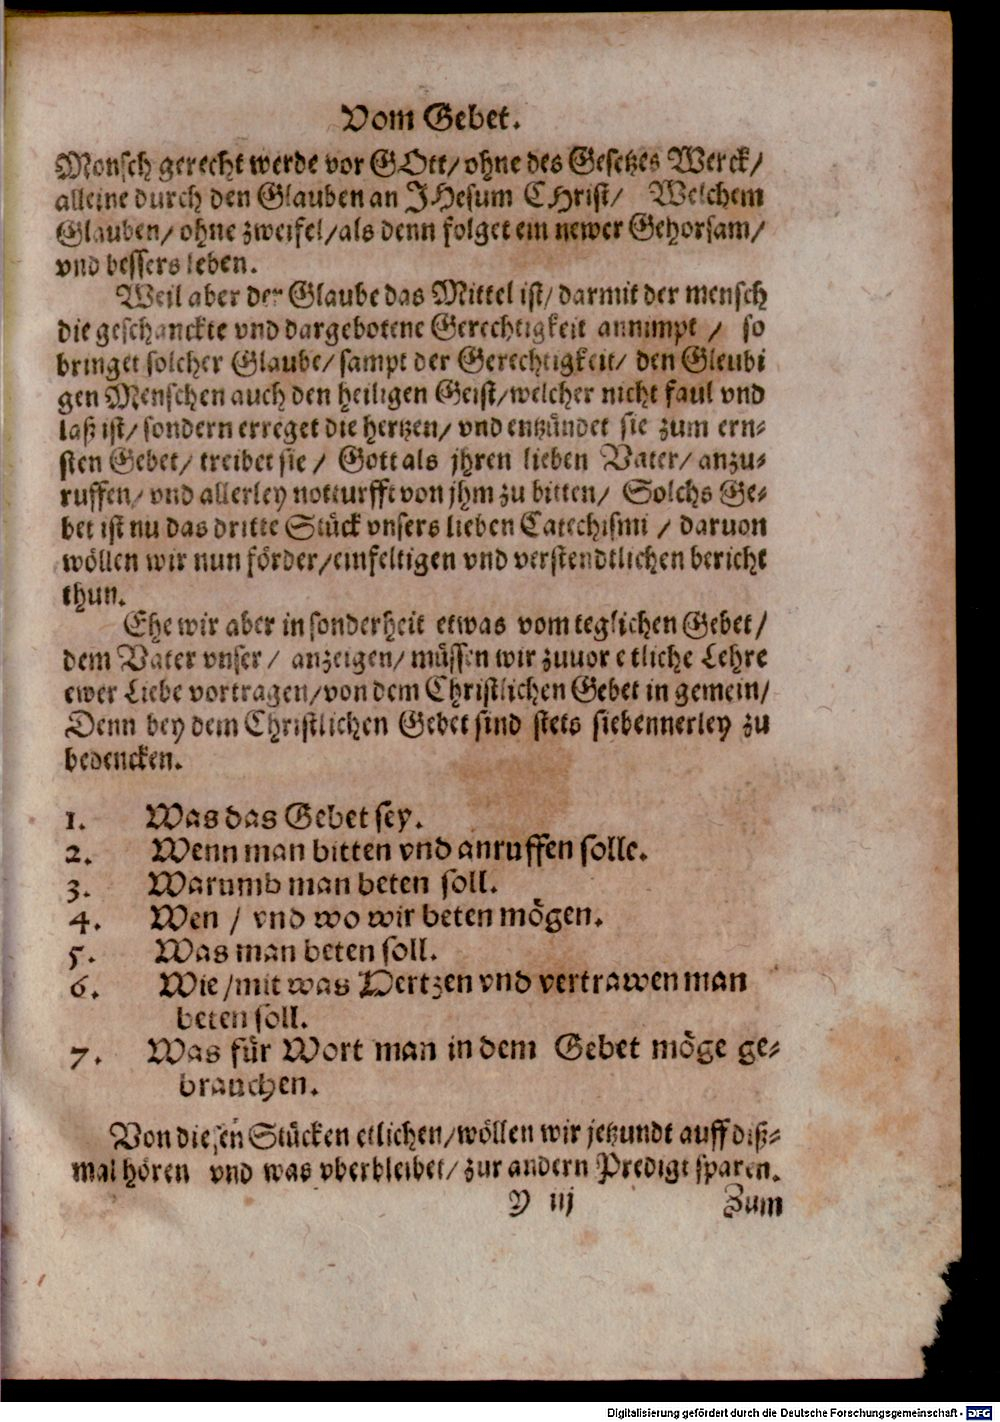 Vom Gebet.
Mensch gerecht werde vor GOtt/ ohne des Gesetzes Werck/
alleine durch den Glauben an JHesum CHrist/ Welchem
Glauben/ ohne zweifel/ als denn folget ein newer Gehorsam/
vnd bessers leben.
Weil aber der Glaube das Mittel ist/ darmit der mensch
die geschanckte vnd dargebotene Gerechtigkeit annimpt / so
bringet solcher Glaube/ sampt der Gerechtigkeit/ den Gleubi
gen Menschen auch den heiligen Geist/ welcher nicht faul vnd
laß ist/ sondern erreget die hertzen/ vnd entzündet sie zum ern-
sten Gebet/ treibet sie / Gott als jhren lieben Vater/ anzu-
ruffen/ vnd allerley notturfft von jhm zu bitten/ Solchs Ge-
bet ist nu das dritte Stück vnsers lieben Catechismi / daruon
wöllen wir nun förder/ einfeltigen vnd verstendtlichen bericht
thun.
Ehe wir aber in sonderheit etwas vom teglichen Gebet/
dem Vater vnser / anzeigen/ müssen wir zuuor etliche Lehre
ewer Liebe vortragen/ von dem Christlichen Gebet in gemein/
Denn bey dem Christlichen Gebet sind stets siebennerley zu
bedencken.
1. Was das Gebet sey.
2. Wenn man bitten vnd anruffen solle.
3. Warumb man beten soll.
4. Wen / vnd wo wir beten mögen.
5. Was man beten soll.
6. Wie / mit was Hertzen vnd vertrawen man
beten soll.
7. Was für Wort man in dem Gebet möge ge-
brauchen.
Von diesen Stücken etlichen/ wöllen wir jetzundt auff diß-
mal hören vnd was vberbleibet/ zur andern Predigt sparen.
Y iij Zum
Digitalisierung gefördert durch die Deutsche Forschungsgemeinschaft - DFG